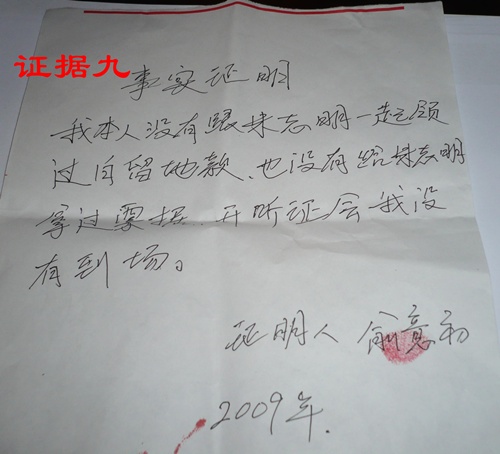 证据九
事实证明
我本人没有跟朱志明一起领
过自留地款、也没有给朱志明
拿过票据.开听证会我没
有到场。
证明人 俞意初
2009年.